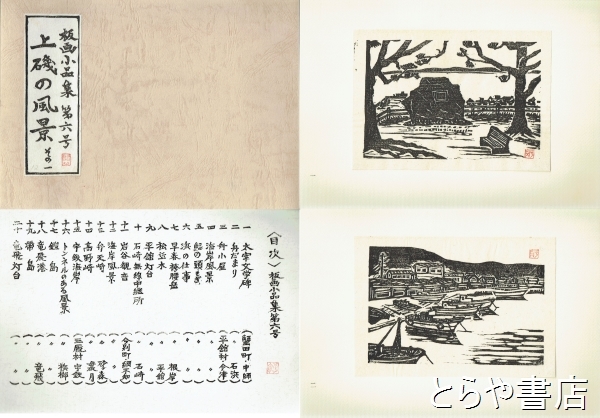 板画小品集 第六号
上磯の風景 その一
〈目次〉 板画小品集第六号
一 太宰文学碑 (蟹田町 中師)
二 舟だまり (〃 石浜)
三 舟小屋 (平舘村 今津)
四 海岸風景 (〃 〃)
五 鱈の頭
六 浜の仕事 (〃 〃)
七 早春 (〃 根岸)
八 松並木 (〃 〃)
九 平舘灯台 (〃 平舘)
十 石崎無線中継所 (〃 石崎)
十一 岩谷観音 (今別町 綱不知)
十二 海岸風景
十三 弁天崎 (〃 砂ヶ森)
十四 高野崎 (〃 袰月)
十五 宇鉄海岸 (三厩村 宇鉄)
十六 トンネルのある風景
十七 鎧島
十八 竜飛港 (〃 竜飛)
十九 帯島 (〃 〃)
二十 竜飛灯台 (〃 〃)
とらや書店